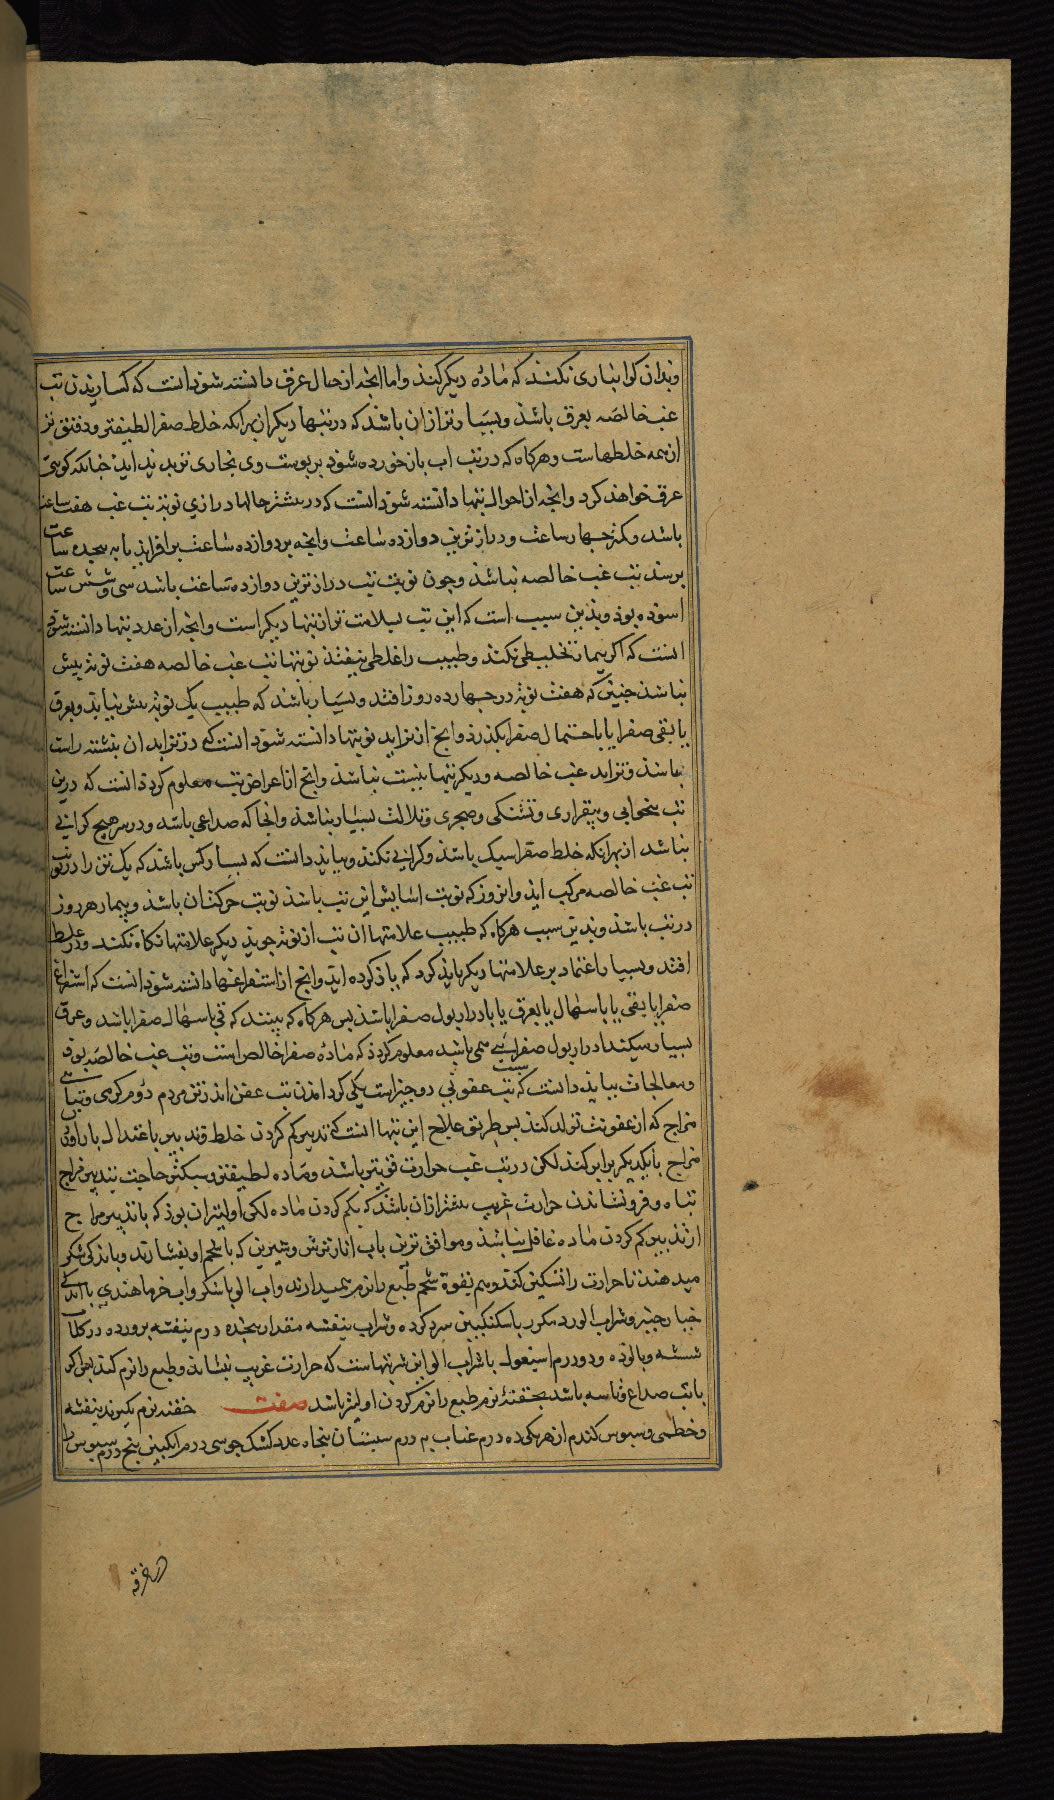 وبدان کوانباری نکند که ماده دیکر کند واما انجه از حال عرق دانسته شود انست که کسازیدن تب
غب خالصه بعرق باشد وبسیار تر ازان باشد که در تبها دیکر از بهر انکه خلط صفرا لطیفتر ورقیق تر
از همه خلطهاست وهرکاه که در تب اب باز خورده شود بر پوست وی بخاری تر پدید اید جنانکه کویی
عرق خواهد کرد وانجه از احوال تبها دانسته شود انست که در بیشتر حالها درازی نوبة تب غب هفت ساعت
باشد وکمتر جهار ساعت ودراز ترین دوازده ساعت وانجه بر دوازده ساعت بر افزاید یا به هجده ساعت
برسد تب غب خالصه نباشد وجون نوبت تب دراز ترین دوازده ساعت باشد سی وشش ساعت
اسوده بود وبدین سبب است که این تب بسلامت تر از تبها دیکر است وانجه از عدد تبها دانسته شود
انست که اکر بیمار تخلیطی نکند وطبیب را غلطی نیفتد نوبتها تب غب خالصه هفت نوبة بیش
نباشد جنین که هفت نوبة در جهارده روز افتد وبسیار باشد که طبیب یک نوبة بیش نیاید وبعرق
یا بقی صفرا یا باحتمال صفرا بکذرد وانج از تزاید نوبتها دانسته شود انست که در تزاید ان بنسبت راست
نباشد وتزاید غب خالصه ودیکر تبها بنسبت نباشد وانج از اعراض تب معلوم کردد انست که درین
تب بیخوابی وبیقراری وتشنکی وضجری وتلالت بسیار نباشد وانجا که صداعی باشد ودر سر هیج کرانی
نباشد از بهر انکه خلط صفرا سبک باشد وکرانی نکند وبباید دانست که بسیار کس باشد که یک تن را دو نوبت
تب غب خالصه مرکب اید وان روز که نوبت اسایش این تب باشد نوبت حرکت ان باشد وبیمار هر روز
در تب باشد وبدین سبب هرکاه که طبیب علامتها ان تب از نوبة جوید دیکر علامتها نکاه نکند ودر غلط
افتد وبسیار اعتماد بر علامتها دیکر باید کرد که یاد کرده اید وانج از استفراغها دانسته شود انست که استفراغ
صفرا یا بقی یا باسهال یا بعرق یا بادرار بول صفرا باشد بس هرکاه که ببینند که قی یا سهال صفرا باشد وعرق
بسیار میکند ادرار بول صفرایی همی باشد معلوم کردد که ماده صفرا خالص است وتب غب خالصه بود
ومعالجات بباید دانست که تب عفونی دو جیز است یکی کرد امدن تب عفن اندر تن مردم دوم کرمی وتباهی
مزاج که از عفونت تولد کند بس طریق علاج این تبها انست که تدبیر کم کردن خلط وتدبیر باعتدال باز اوردن
مزاج با یکدیکر برابر کند لکن در تب غب حرارت قوی تر باشد وماده لطیفتر وسبکتر حاجت تدبیر مزاج
تباه وفرو نشاندن حرارت غریب بیشتر ازان باشد که بکم کردن ماده لکن اولیتر ان بود که با تدبیر مزاج
از تدبیر کم کردن ماده غافل نباشد وموافق ترین باب انار ترش وشیرین که با شحم او بفشارند وباندکی شکر
میدهند تا حرارت را تسکین کند وهم بقوة شحم طبع را نرم همیدارند واب الو با شکر واب خرما هندی با اندکی
خیار جنبر وشراب الورد مکرر با سکنکبین سرد کرده وشراب بنفشه مقدار هجده درم بنفشه برورده در کلاب
شسته وبالوده ودو درم اسبغول با شراب الو این شربتهاست که حرارت غریب بنشاند وطبع را نرم کند بس اکر
با تب صداع وتاسه باشد بحقنهٔ نرم طبع را نرم کردن اولیتر باشد صفت حقنه نرم بکیرند بنفشه
وخطمی وسبوس کندم از هر یکی ده درم عناب ... درم سبستان بنجاه عدد کشک جو سی درم انکبین بنج درم سبوس را
در خرقه